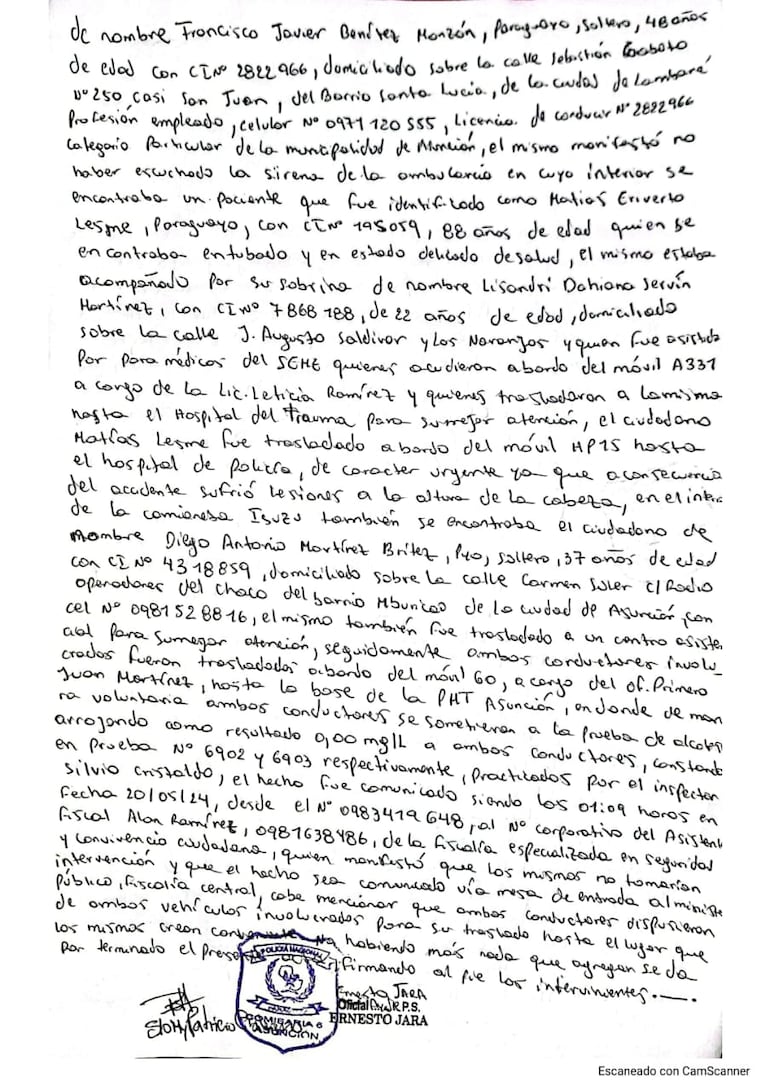 de nombre Francisco Javier Benítez Monzón, Paraguayo, soltero, 48 años
de edad con CI Nº 2822966, domiciliado sobre la calle Sebastián Gaboto
Nº 250 casi San Juan, del Barrio Santa Lucía, de la ciudad de Lambaré
Profesión empleado, celular Nº 0971 120 555, Licencia de conducir Nº 2822966
Categoría Particular de la municipalidad de Asunción, el mismo manifestó no
haber escuchado la sirena de la ambulancia en cuyo interior se
encontraba un paciente que fue identificado como Matias Eriverto
Lesme, Paraguayo, con CI Nº 195059, 88 años de edad quien se
encontraba entubado y en estado delicado de salud, el mismo estaba
acompañado por su sobrina de nombre Lisandri Dahiana Servín
Martínez, con CI Nº 7868188, de 22 años de edad, domiciliado
sobre la calle J. Augusto Saldivar y Los Naranjos y quien fue asistida
Por Paramédicos del SEME quienes acudieron abordo del móvil A331
a cargo de la Lic. Leticia Ramírez y quienes trasladaron a la misma
hasta el Hospital del Trauma para su mejor atención, el ciudadano
Matías Lesme fue trasladado abordo del móvil HP15 hasta
el hospital de Policía, de caracter urgente ya que a consecuencia
del accidente sufrió lesiones a la altura de la cabeza, en el inter
de la camioneta Isuzu también se encontraba el ciudadano de
nombre Diego Antonio Martínez Brítez, Pyo, soltero, 37 años de edad
con CI Nº 4318859, domiciliado sobre la calle Carmen Soler c/ Radio
operadores del chaco del barrio Mburicao de la ciudad de Asunción, con
cel Nº 0981528816, el mismo también fue trasladado a un centro asisten
cial para su mejor atención, seguidamente ambos conductores involu_
crados fueron trasladados abordo del móvil 60, a cargo del of. Primero
Juan Martínez, hasta la base de la PHT Asunción, en donde de man
ra voluntaria ambos conductores se sometieron a la prueba de alcotes
arrojando como resultado 0,00 mg/L a ambos conductores, constando
en Prueba Nº 6902 y 6903 respectivamente, Practicados por el inspector
Silvio Cristaldo, el hecho fue comunicado siendo las 01:09 horas en
fecha 20/05/24, desde el Nº 0983419648, al Nº corporativo del Asistente
fiscal Alan Ramírez, 0981638486, de la fiscalía especializada en seguridad
y convivencia ciudadana, quien manifestó que los mismos no tomarían
intervención y que el hecho sea comunicado vía mesa de entrada al ministe
Público, Fiscalía central, cabe mencionar que ambos conductores dispusieron
de ambos vehículos involucrados para su traslado hasta el lugar que
los mismos crean conveniente no habiendo más nada que agregar se da
por terminado el firmando al pie los intervinientes.—.
POLICIA NACIONAL
COMISARIA 6
ASUNCION
Ernesto Jara
Oficial P.S.
ERNESTO JARA
Escaneado con CamScanner